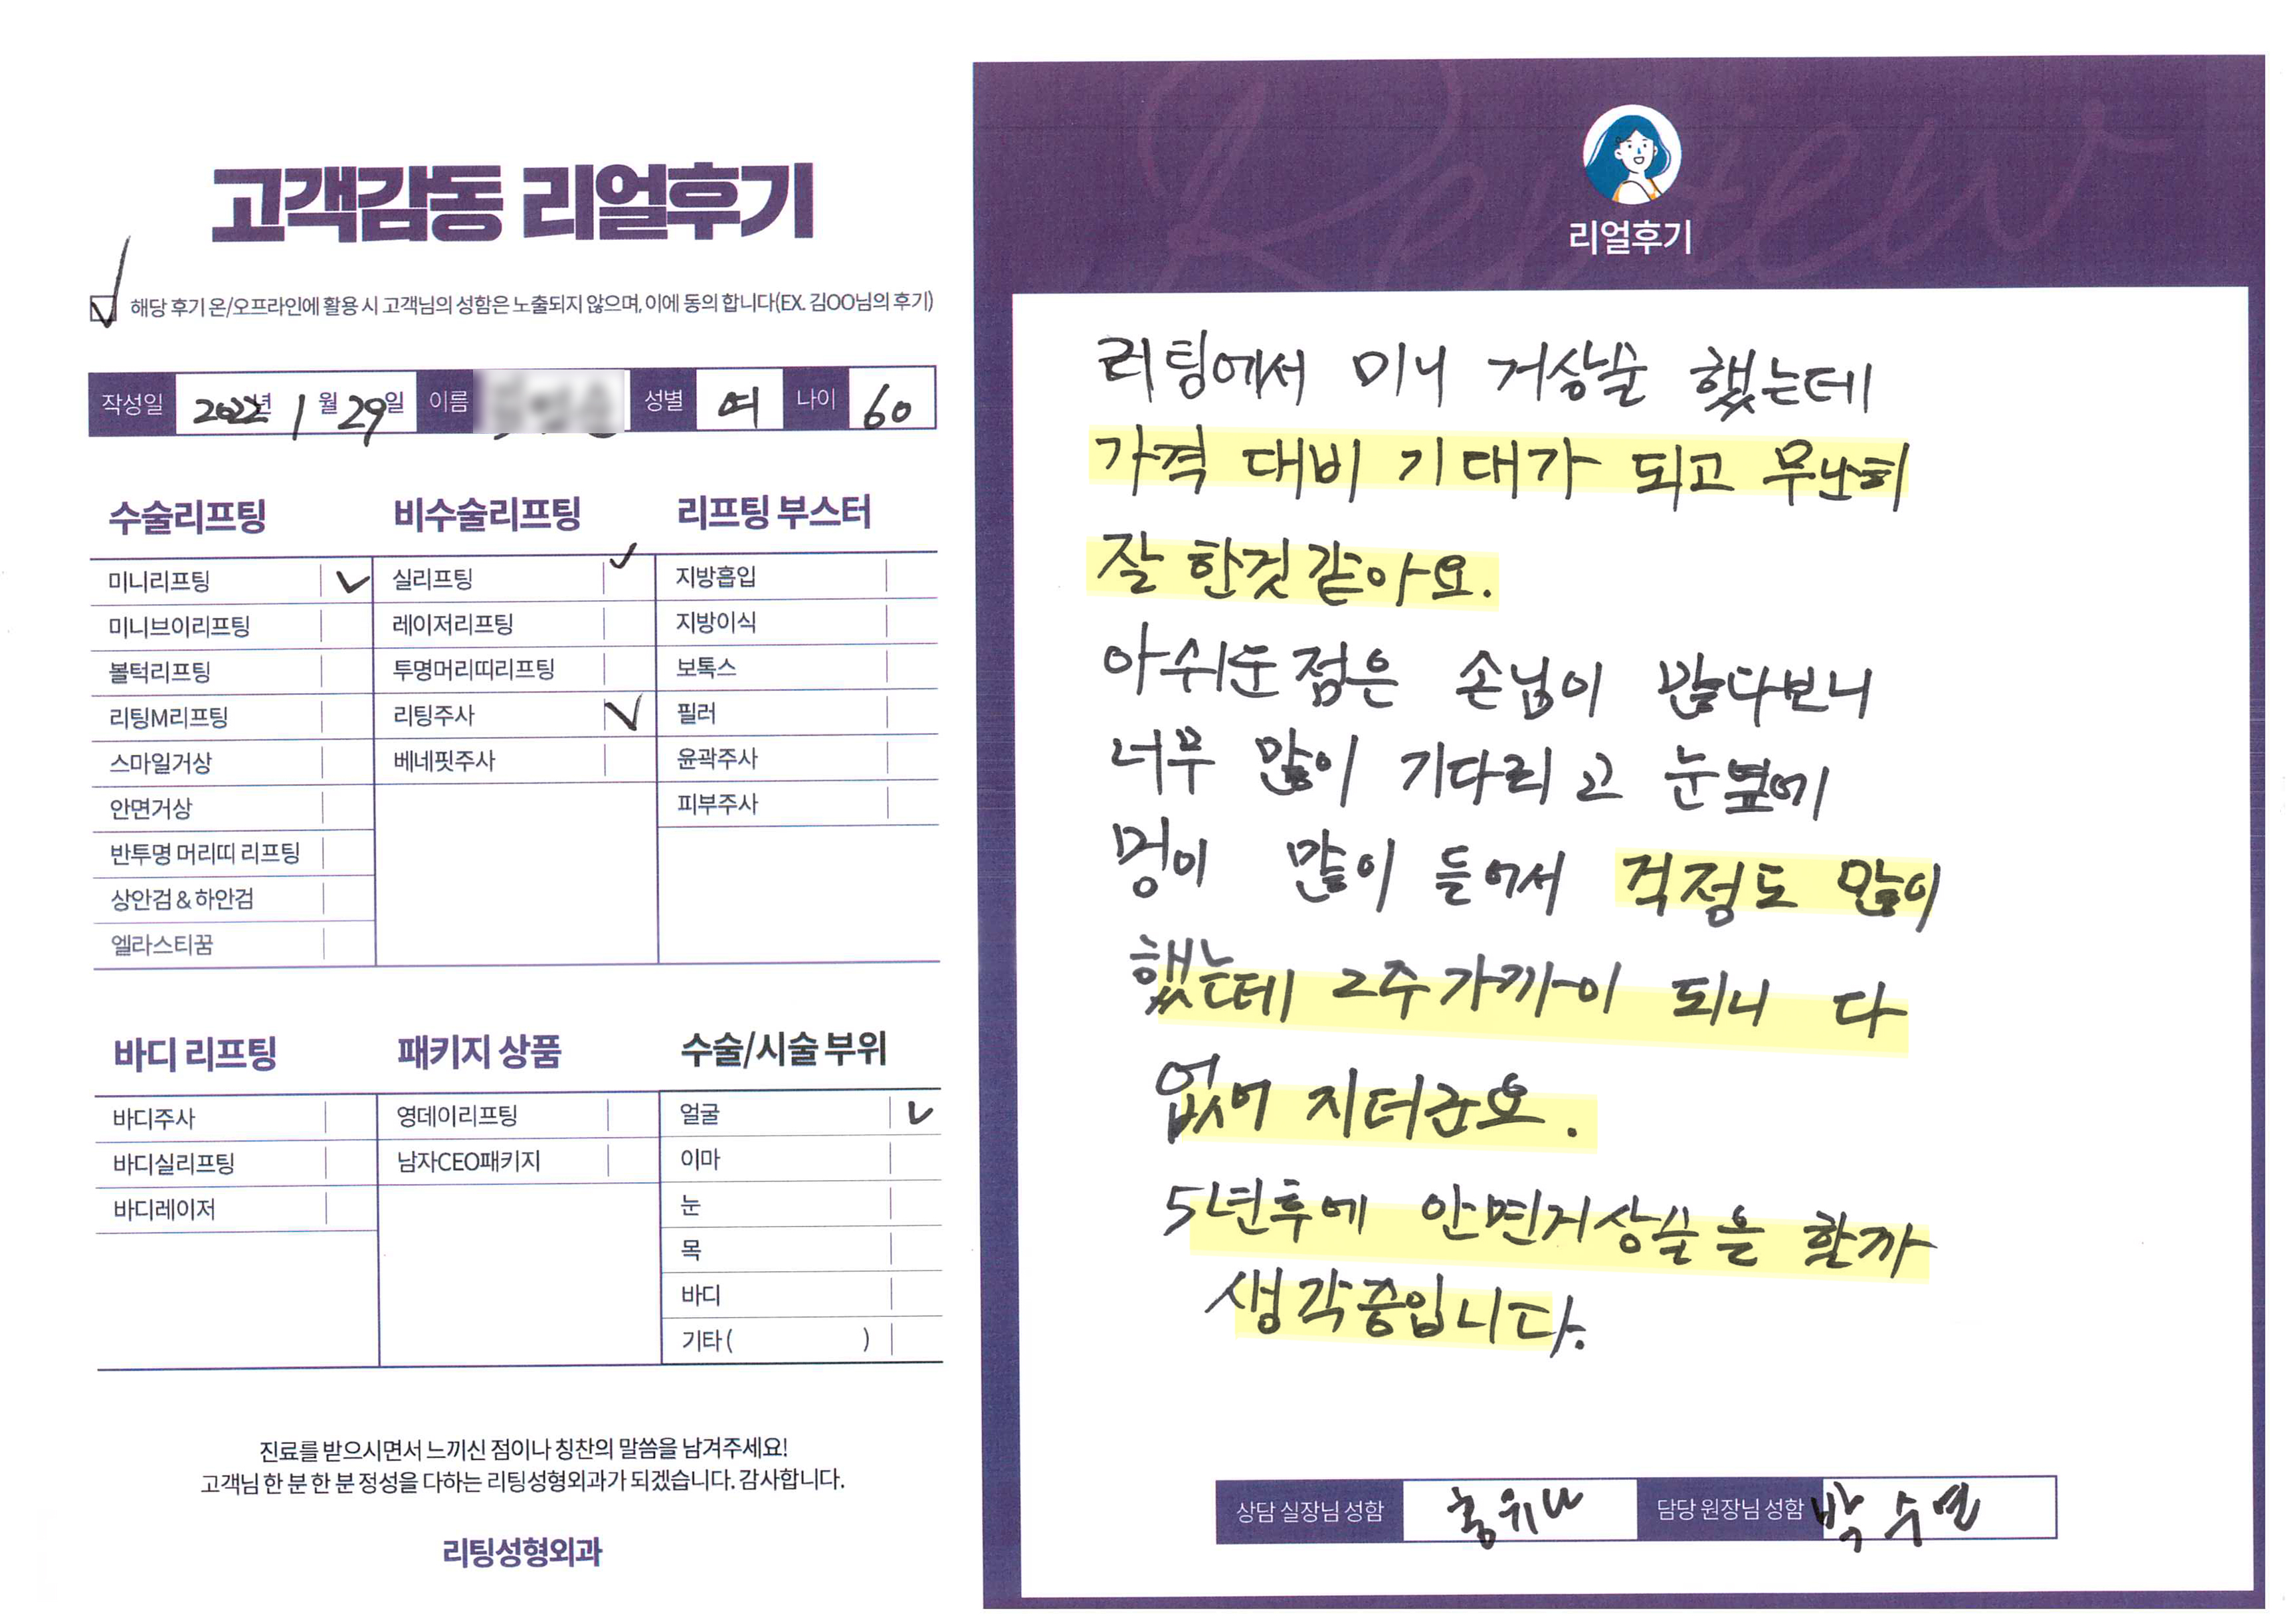 고객감동 리얼후기
해당 후기 온/오프라인에 활용 시 고객님의 성함은 노출되지 않으며, 이에 동의 합니다(EX. 김OO님의 후기)
작성일 2022년 1월 29일 이름 성별 여 나이 60
수술리프팅
미니리프팅
미니브이리프팅
볼턱리프팅
리팅M리프팅
스마일거상
안면거상
반투명 머리띠 리프팅
상안검 & 하안검
엘라스티꿈
비수술리프팅
실리프팅
레이저리프팅
투명머리띠리프팅
리팅주사
베네핏주사
리프팅 부스터
지방흡입
지방이식
보톡스
필러
윤곽주사
피부주사
바디 리프팅
바디주사
바디실리프팅
바디레이저
패키지 상품
영데이리프팅
남자CEO패키지
수술/시술 부위
얼굴
이마
눈
목
바디
기타 ( )
진료를 받으시면서 느끼신 점이나 칭찬의 말씀을 남겨주세요!
고객님 한 분 한 분 정성을 다하는 리팅성형외과가 되겠습니다. 감사합니다.
리팅성형외과
Review
리얼후기
리팅에서 미니 거상술 했는데
가격 대비 기대가 되고 무난히
잘 한것 같아요.
아쉬운 점은 손님이 많다보니
너무 많이 기다리고 눈 옆에
멍이 많이 들어서 걱정도 많이
했는데 2주 가까이 되니 다
없어 지더군요.
5년후에 안면거상술을 할까
생각중입니다.
상담 실장님 성함 담당 원장님 성함 박수연